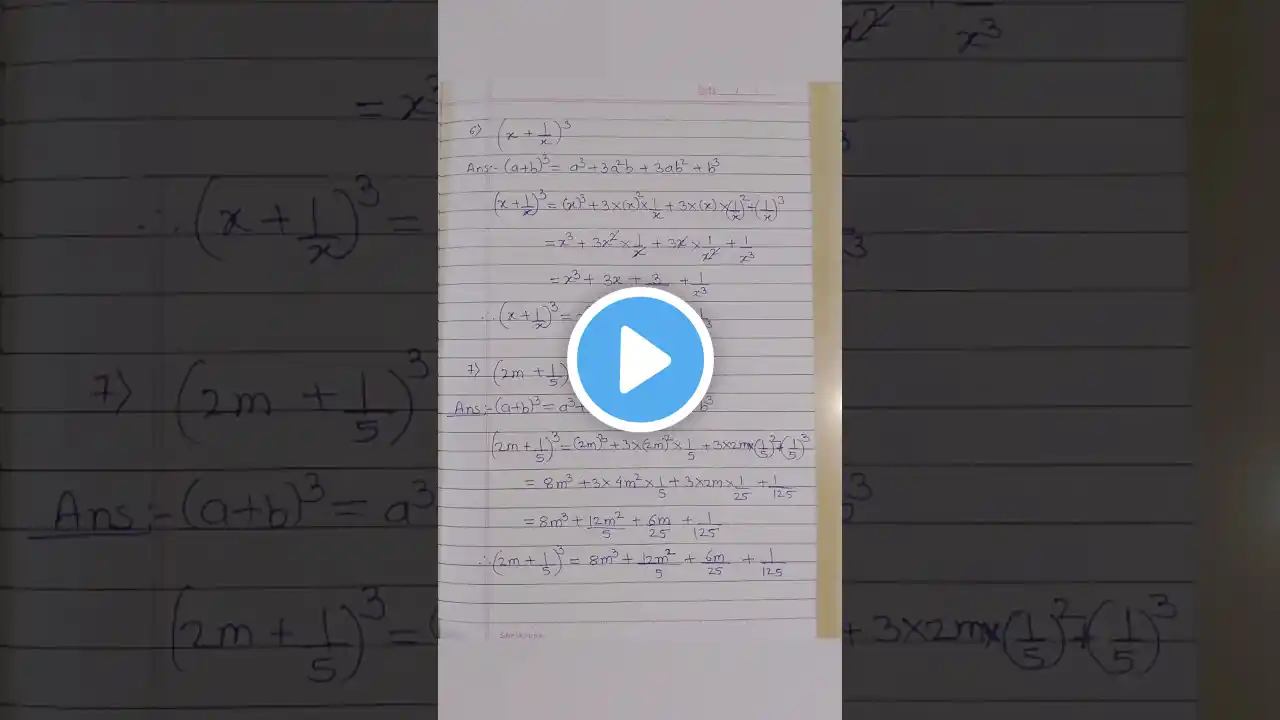 Date
6) (x + 1/x)³
Ans:- (a+b)³ = a³ + 3a²b + 3ab² + b³
(x + 1/x)³ = (x)³ + 3×(x)²×1/x + 3×(x)×(1/x)² + (1/x)³
= x³ + 3x² × 1/x + 3x × 1/x² + 1/x³
= x³ + 3x + 3 + 1/x³
∴ (x + 1/x)³ =
7) (2m + 1/5)
Ans:- (a+b)³ = a³ b³
(2m + 1/5)³ = (2m)³ + 3×(2m)² × 1/5 + 3×2m×(1/5)² + (1/5)³
= 8m³ + 3×4m² × 1/5 + 3×2m × 1/25 + 1/125
= 8m³ + 12m²/5 + 6m/25 + 1/125
∴ (2m + 1/5)³ = 8m³ + 12m²/5 + 6m/25 + 1/125